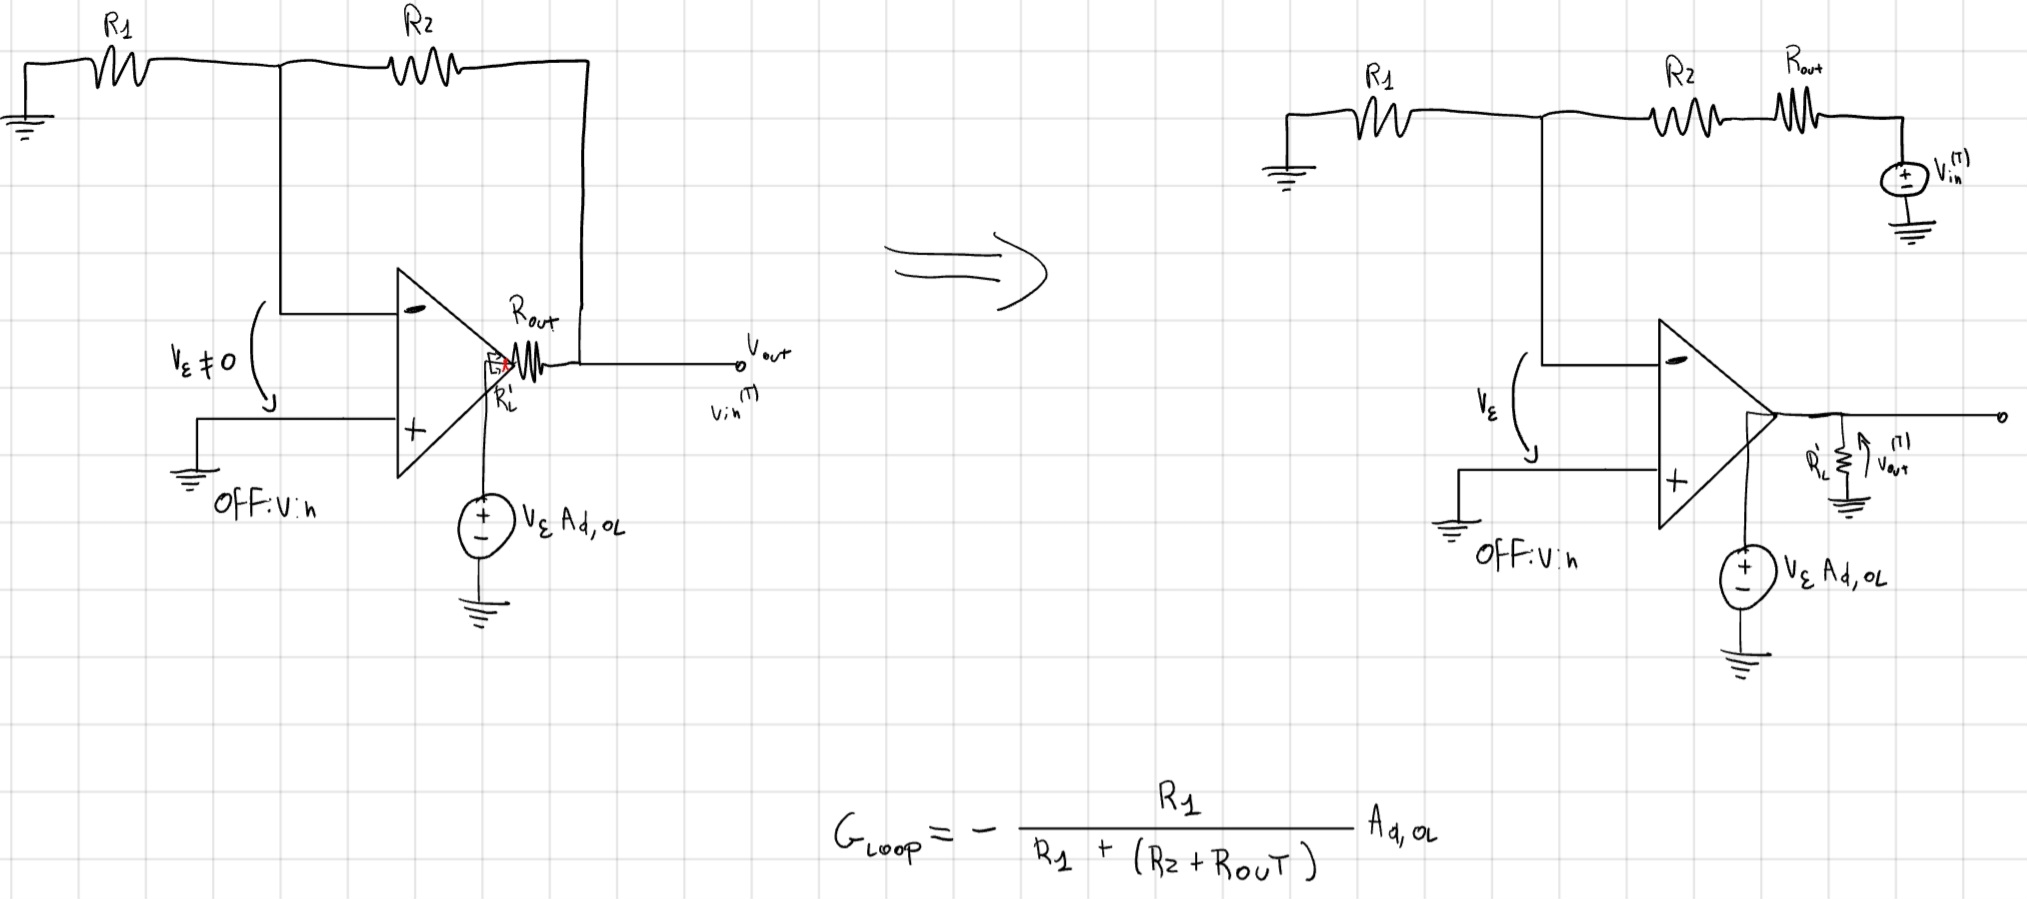 R1
R2
Rout
-
Vε ≠ 0
+
RL'
Vout
Vin(T)
OFF: Vin
+
-
Vε Ad,OL
R1
R2
Rout
+
-
Vin(T)
-
Vε
+
RL'
Vout(T)
OFF: Vin
+
-
Vε Ad,OL
GLOOP = - R1 / (R1 + (R2 + ROUT)) Ad,OL